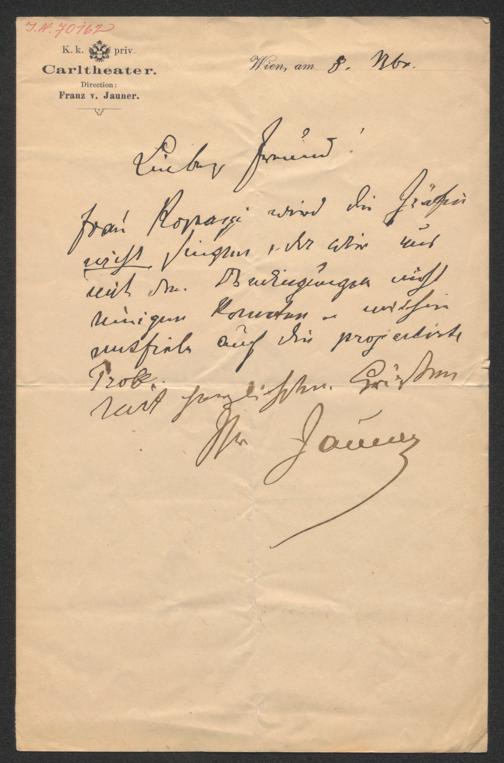 I.N. 70162
K. k. priv.
Carltheater.
Direction:
Franz v. Jauner.
Wien, am 8. Nbr.
Lieber Freund!
Frau Kopacsi wird die Gräfin
nicht singen, da wir uns
mit den Bedingungen nicht
einigen konnten u. mithin
entfiele auch die projectirte
Probe.
Mit herzlichsten Grüßen
Ihr Jauner